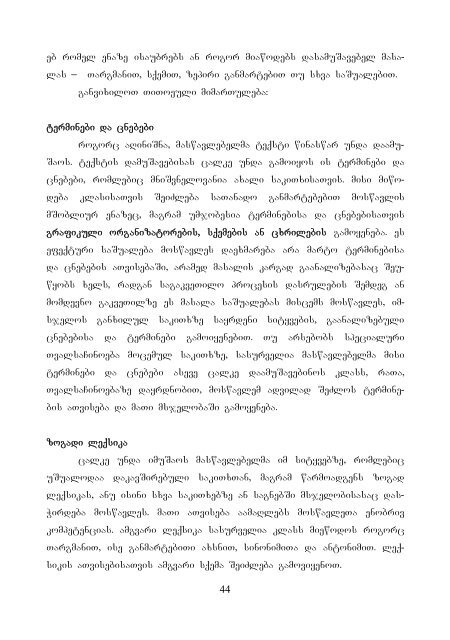 ებ რომელ ენაზე ისაუბრებს ან როგორ მიაწოდებს დასამუშავებელ მასა-
ლას – თარგმანით, სქემით, ზეპირი განმარტებით თუ სხვა საშუალებით.
განვიხილოთ თითოეული მიმართულება:
ტერმინები და ცნებები
როგორც აღინიშნა, მასწავლებელმა ტექსტი წინასწარ უნდა დაამუ-
შაოს. ტექსტის დამუშავებისას ცალკე უნდა გამოიყოს ის ტერმინები და
ცნებები, რომლებიც მნიშვნელოვანია ახალი საკითხისათვის. მისი მიწო-
დება კლასისათვის შეიძლება სათანადო განმარტებებით მოსწავლის
მშობლიურ ენაზეც, მაგრამ უმჯობესია ტერმინებისა და ცნებებისათვის
გრაფიკული ორგანიზატორების, სქემების ან ცხრილების გამოყენება. ეს
ეფექტური საშუალება მოსწავლეს დაეხმარება არა მარტო ტერმინებისა
და ცნებების ათვისებაში, არამედ მასალის კარგად გაანალიზებასაც შეუ-
წყობს ხელს, რადგან საგაკვეთილო პროცესის დასრულების შემდეგ ან
მომდევნო გაკვეთილზე ეს მასალა საშუალებას მისცემს მოსწავლეს, იმ-
სჯელოს განხილულ საკითხზე საყრდენი სიტყვების, გაანალიზებული
ცნებებისა და ტერმინები გამოიყენებით. თუ არსებობს სპეციალური
თვალსაჩინოება მოცემულ საკითხზე, სასურველია მასწავლებელმა მისი
ტერმინები და ცნებები ასევე ცალკე დაამუშავებინოს კლასს, რათა,
თვალსაჩინოებაზე დაყრდნობით, მოსწავლემ ადვილად შეძლოს ტერმინე-
ბის ათვისება და მათი მსჯელობაში გამოყენება.
ზოგადი ლექსიკა
ცალკე უნდა იმუშაოს მასწავლებელმა იმ სიტყვებზე, რომლებიც
უშუალოდაა დაკავშირებული საკითხთან, მაგრამ წარმოადგენს ზოგად
ლექსიკას, ანუ ისინი სხვა საკითხებზე ან საგნებში მსჯელობისასაც დას-
ჭირდება მოსწავლეს. მათი ათვისება აამაღლებს მოსწავლეთა ენობრივ
კომპეტენციას. ამგვარი ლექსიკა სასურველია კლასს მიეწოდოს როგორც
თარგმანით, ისე განმარტებითი ახსნით, სინონიმითა და ანტონიმით. ლექ-
სიკის ათვისებისათვის ამგვარი სქემა შეიძლება გამოვიყენოთ.
44